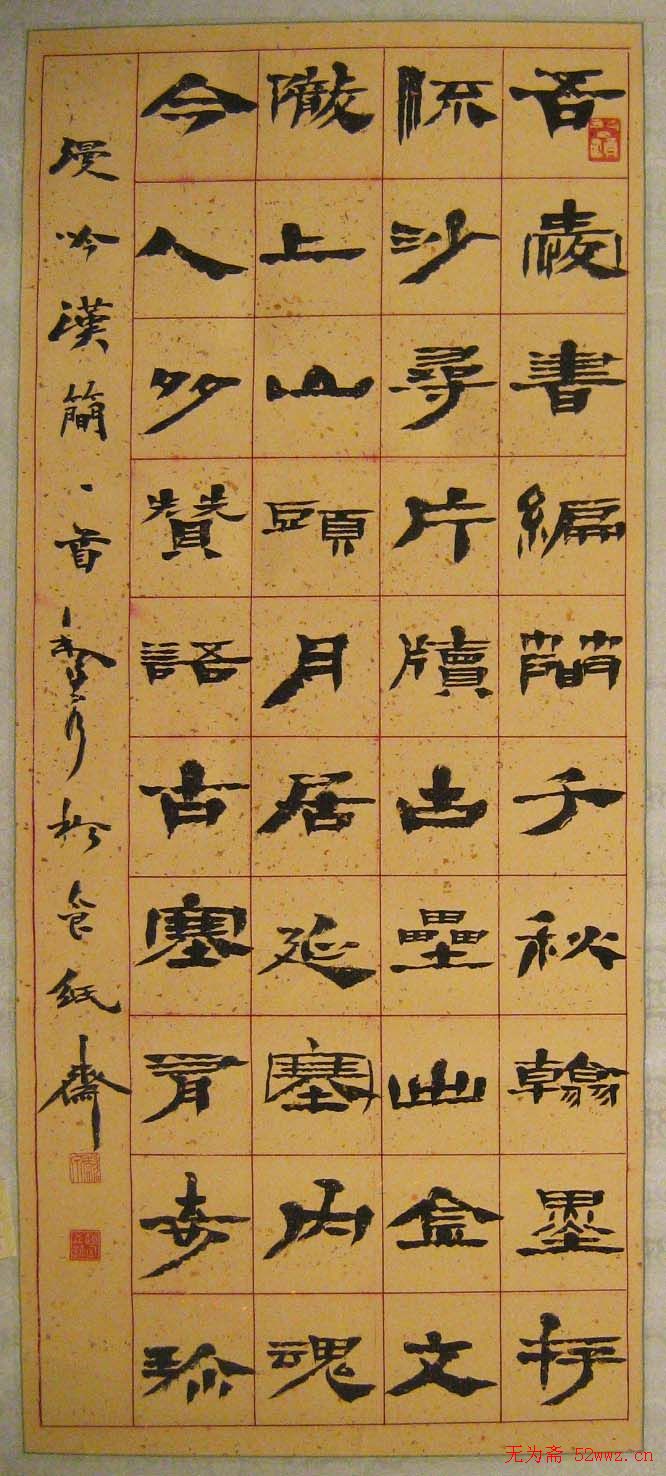 吾書編簡千秋翰墨存
流沙尋片牘古壘出金文
隴上山頭月居延塞內魂
今人多贊語古塞有奇珍
漫吟漢簡一首 於食紙齋
无为斋 52wwz.cn